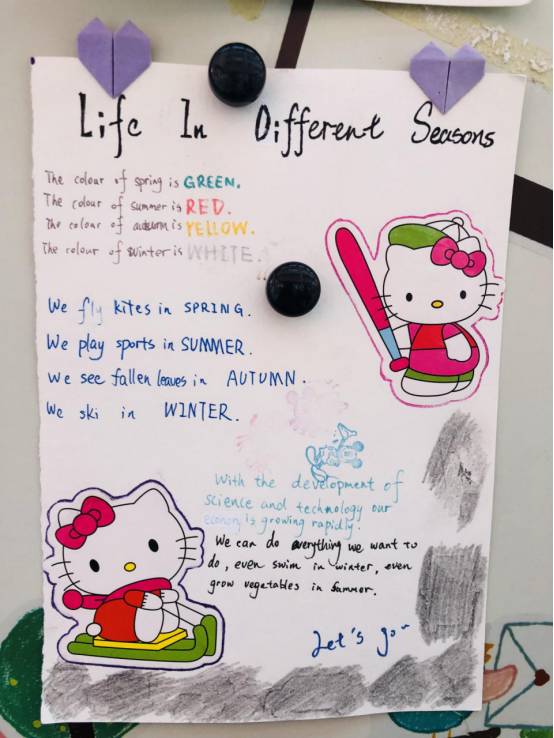 Life In Different Seasons
The colour of spring is GREEN.
The colour of summer is RED.
The colour of autumn is YELLOW.
The colour of winter is WHITE.
We fly kites in SPRING.
We play sports in SUMMER.
We see fallen leaves in AUTUMN.
We ski in WINTER.
With the development of
science and technology our
economy is growing rapidly.
We can do everything we want to
do, even swim in winter, even
grow vegetables in Summer.
Let's go~